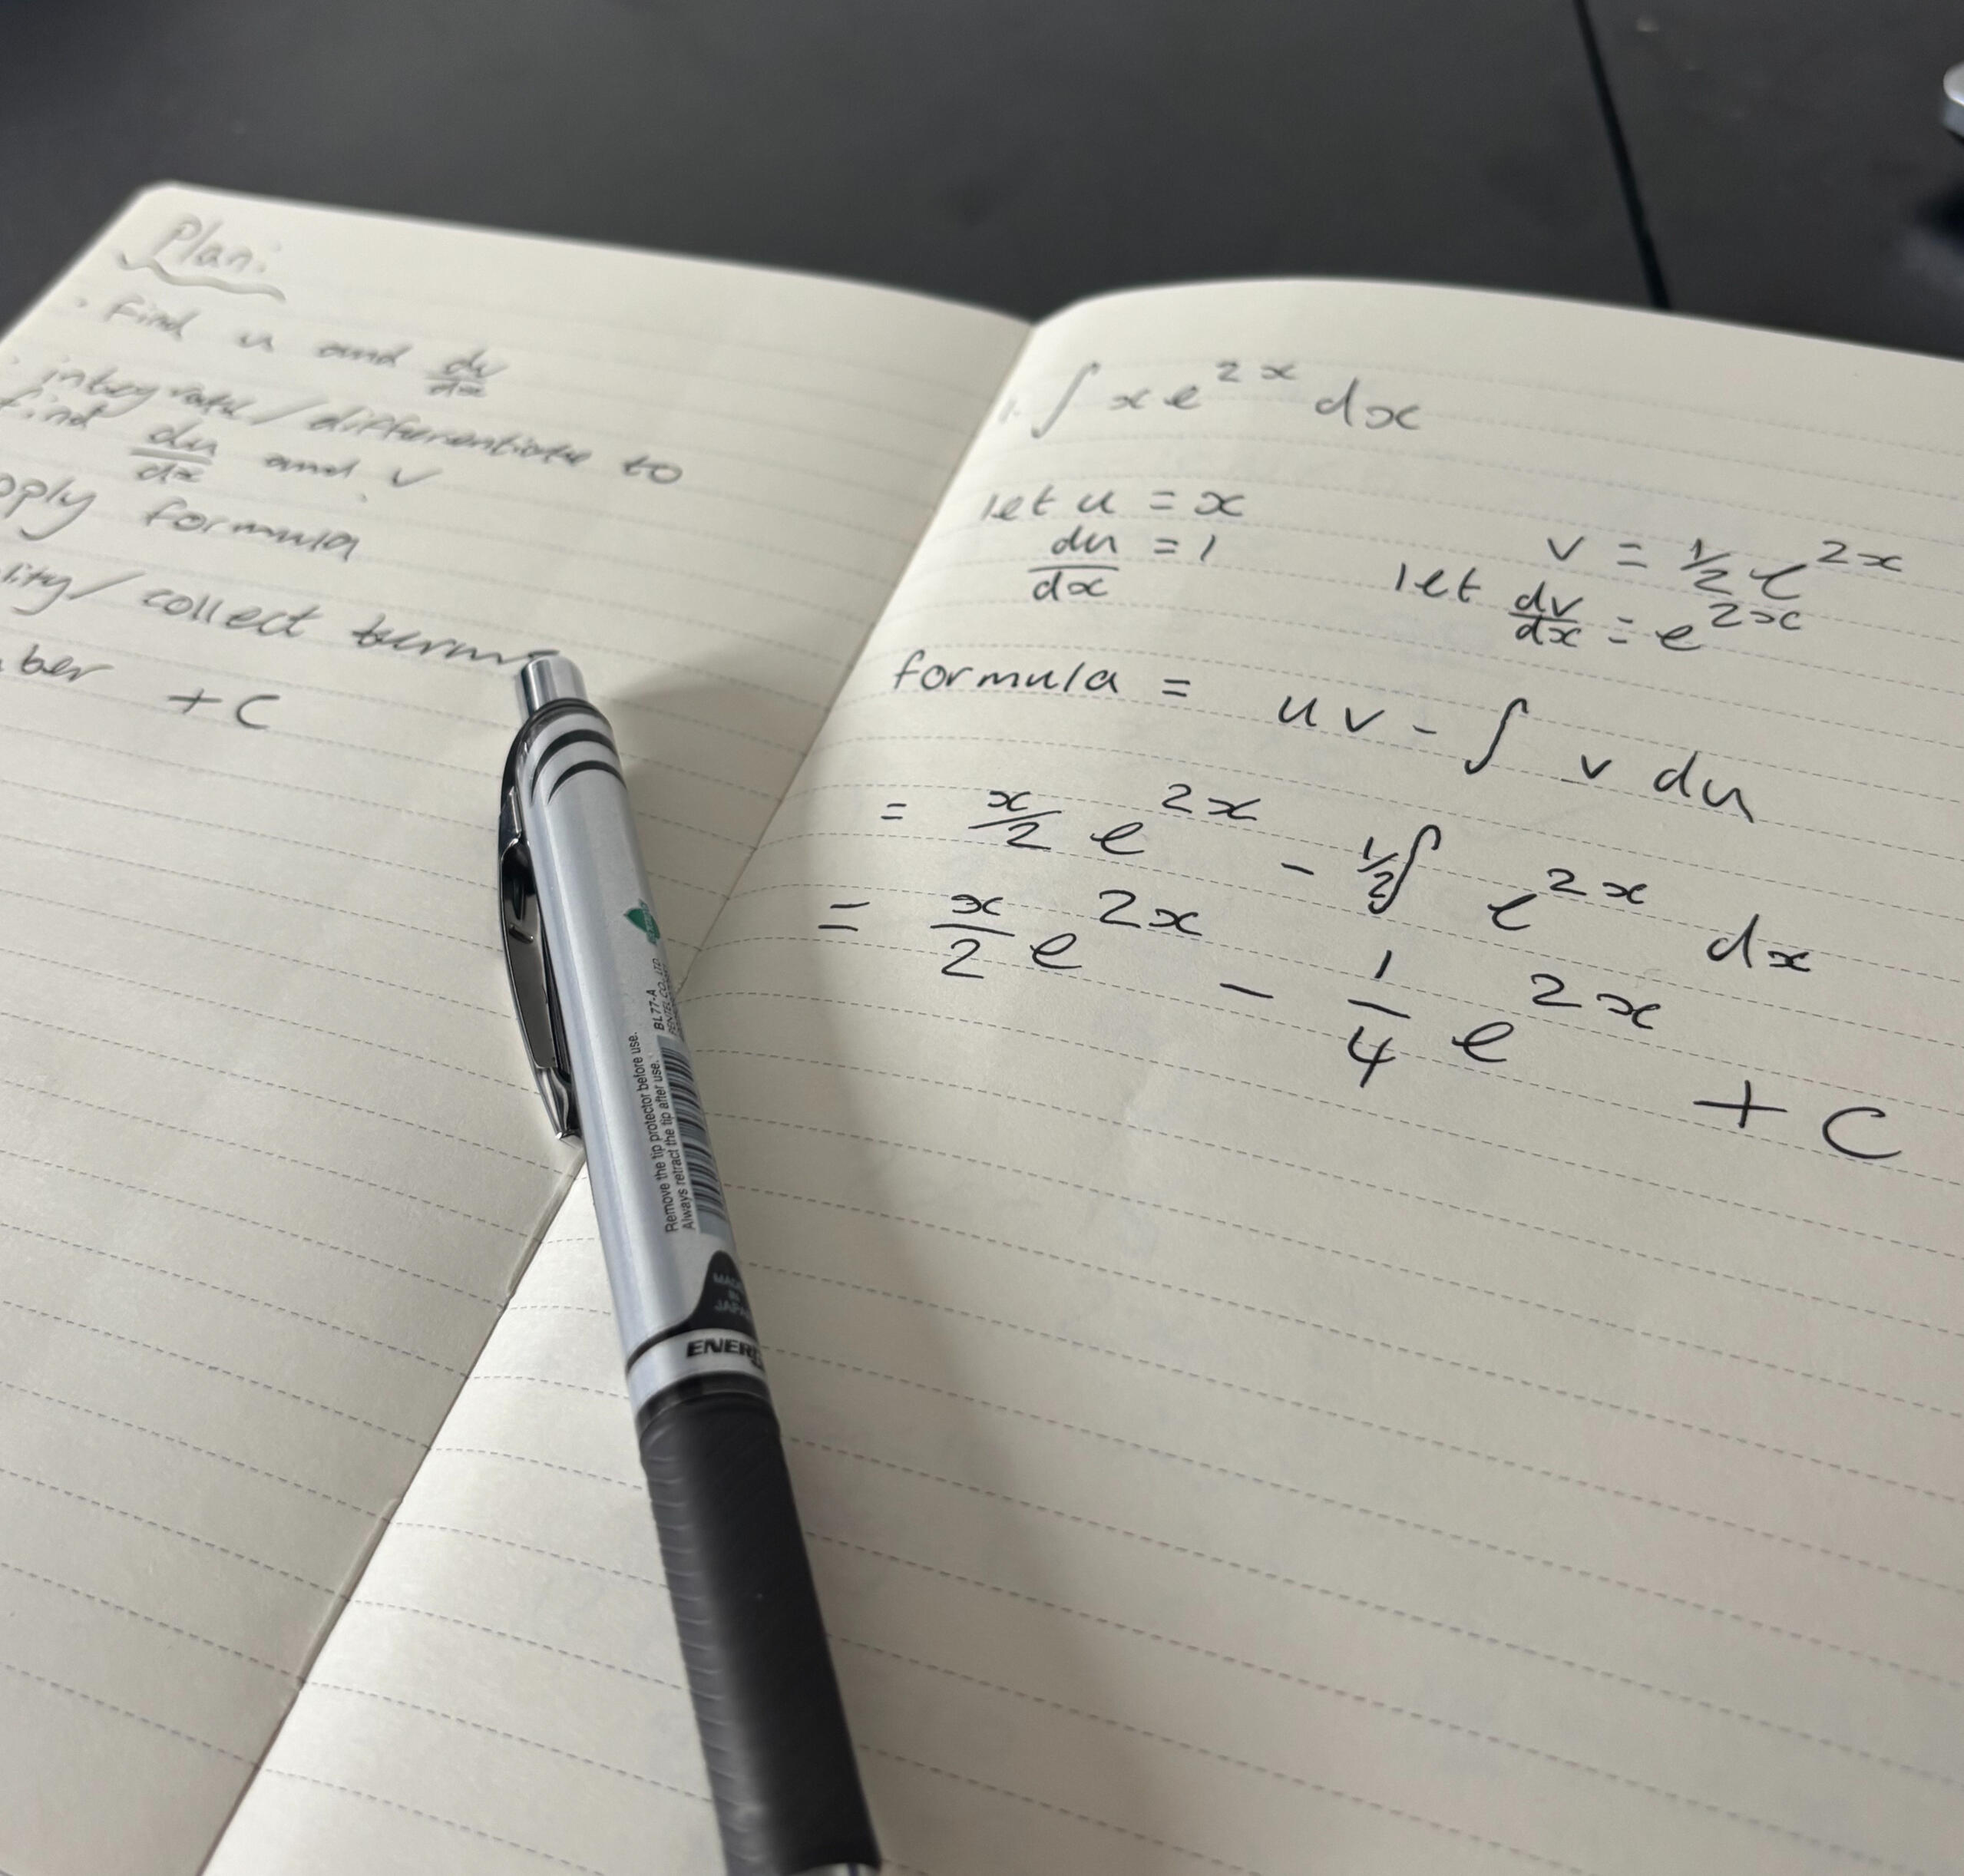 Plan:
· Find u and dv/dx
· integrate/differentiate to
find du/dx and v
pply formula
lity/ collect terms
ber +C
1. ∫ x e^2x dx
let u = x
du/dx = 1
v = 1/2 e^2x
let dv/dx = e^2x
formula = uv - ∫ v du
= x/2 e^2x - 1/2 ∫ e^2x dx
= x/2 e^2x - 1/4 e^2x + C
Remove the tip protector before use.
Always retract the tip after use.
BL77-A
PENTEL CO., LTD.
MADE
IN
JAPAN
ENER